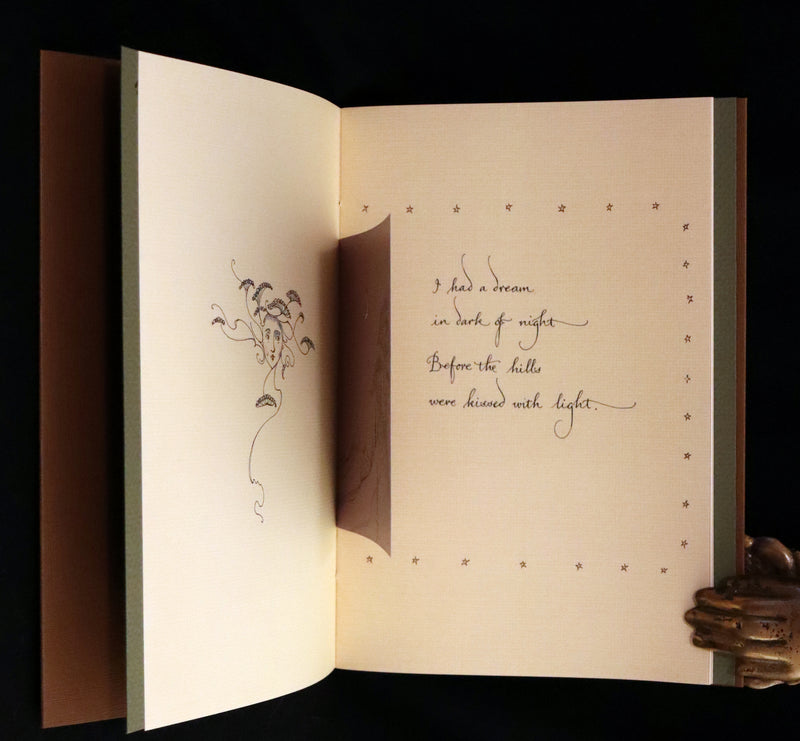 I had a dream
in dark of night
Before the hills
were kissed with light.